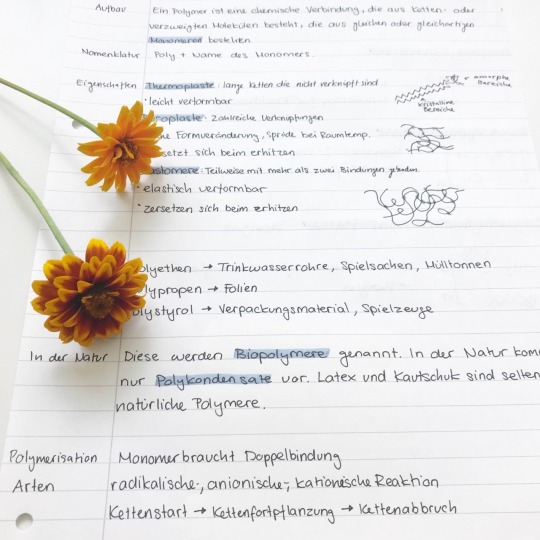 Aufbau Ein Polymer ist eine chemische Verbindung, die aus Ketten- oder
verzweigten Molekülen besteht, die aus gleichen oder gleichartigen
Monomeren bestehen.
Nomenklatur Poly + Name des Monomers.
Eigenschaften Thermoplaste: lange Ketten die nicht verknüpft sind
+ amorphe Bereiche
• leicht verformbar
kristalline Bereiche
oplaste: Zahlreiche Verknüpfungen
ne Formveränderung, Spröde bei Raumtemp.
setzt sich beim erhitzen
astomere: Teilweise mit mehr als zwei Bindungen
• elastisch verformbar
• zersetzen sich beim erhitzen
olyethen → Trinkwasserrohre, Spielsachen, Mülltonnen
lypropen → Folien
olystyrol → Verpackungsmaterial, Spielzeuge
In der Natur Diese werden Biopolymere genannt. In der Natur kom
nur Polykondensate vor. Latex und Kautschuk sind selten
natürliche Polymere.
Polymerisation Monomer braucht Doppelbindung
Arten radikalische-, anionische-, kationische Reaktion
Kettenstart → Kettenfortpflanzung → Kettenabbruch